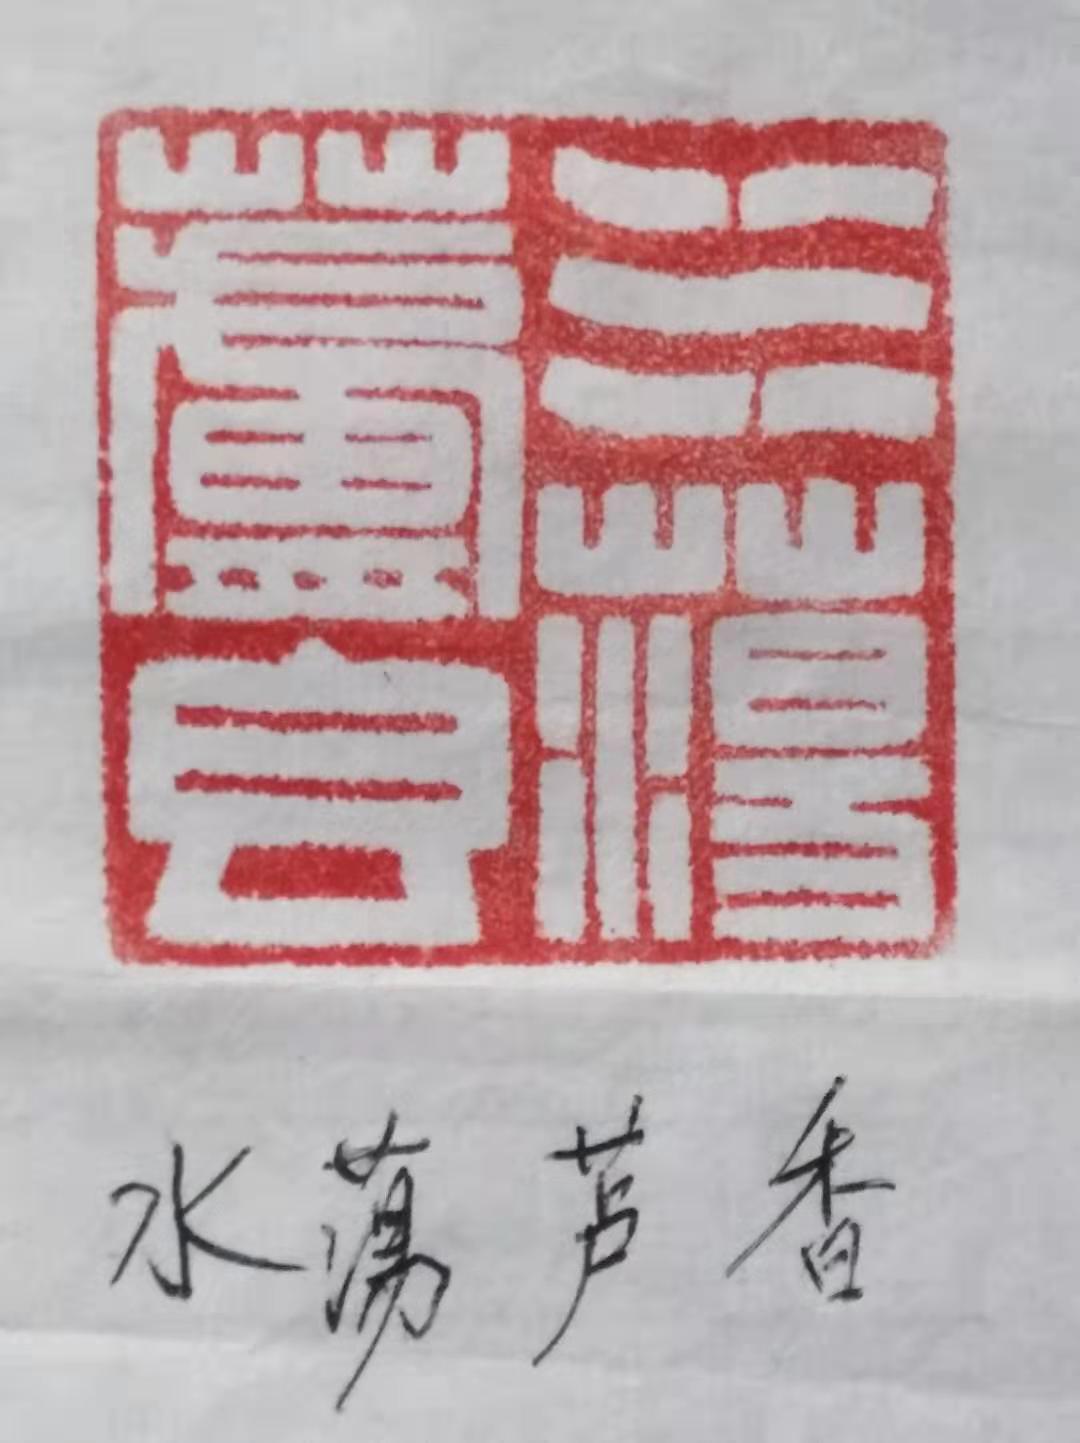 水蕩
蘆香
水蕩芦香